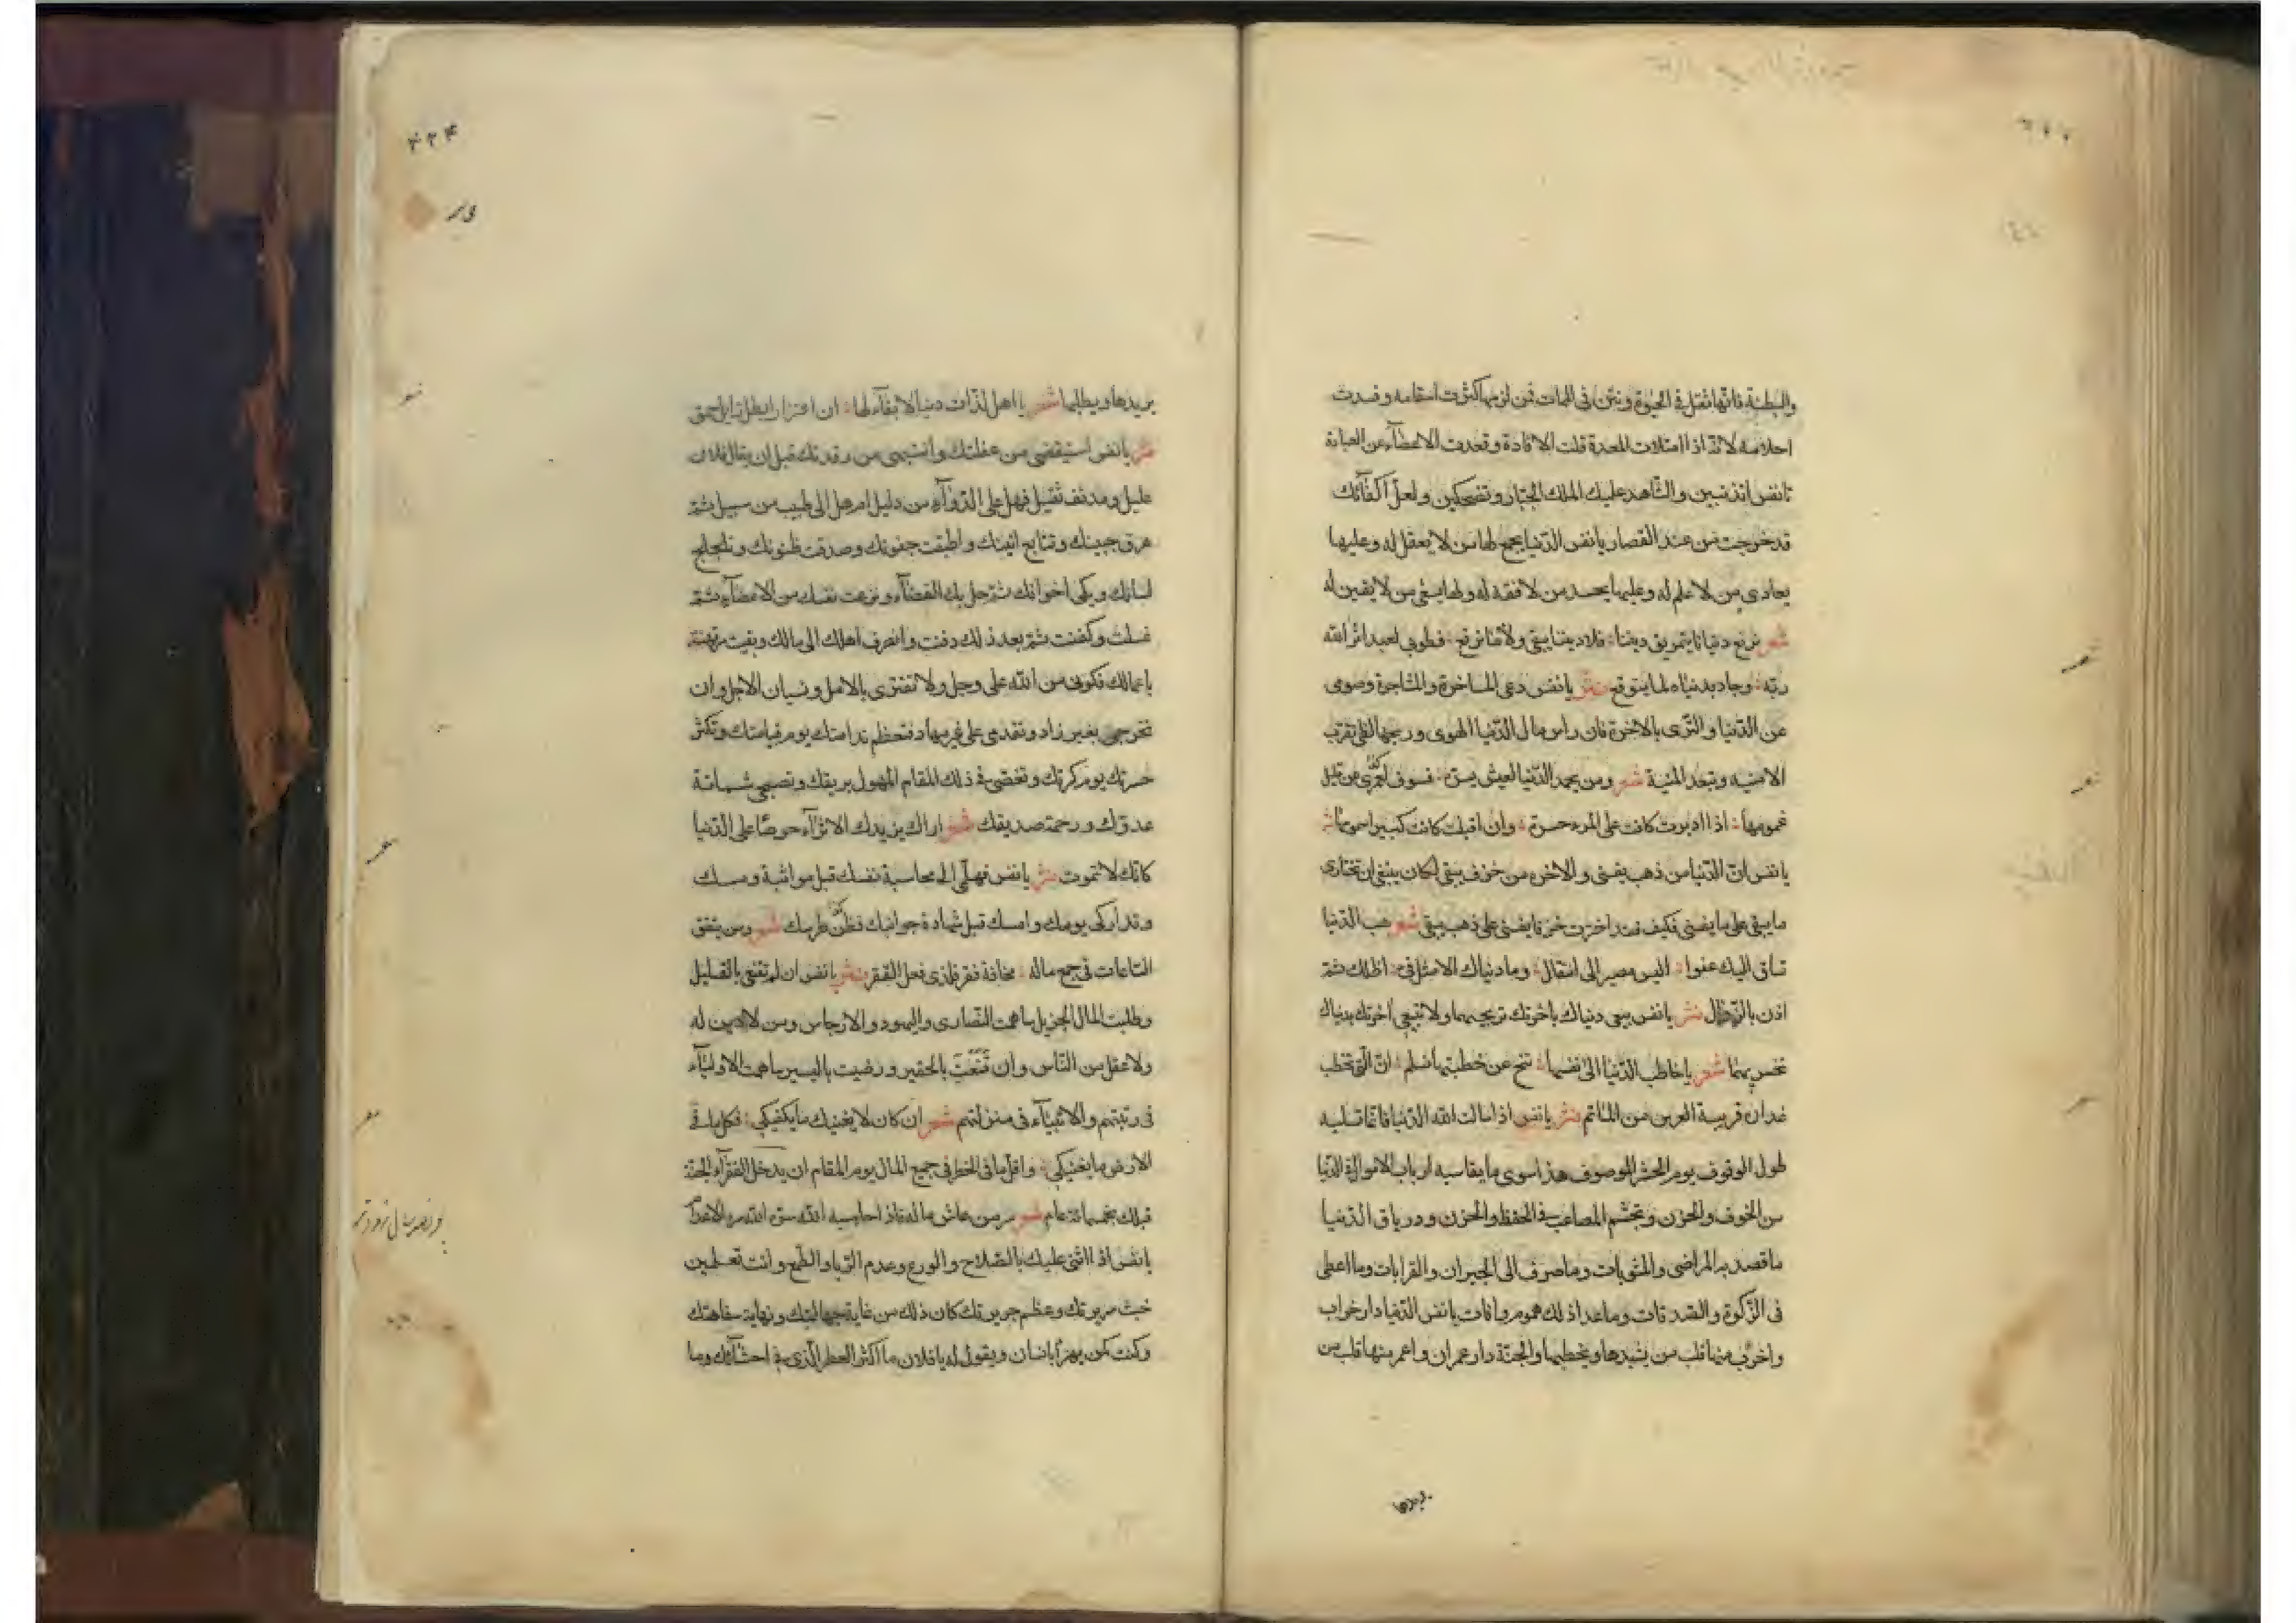 والبطنة فانها تثقل في الحيوة وتنتن في الممات فمن لزمها كثرت اسقامه وفسدت
احلامه لانه اذا امتلات المعدة قلت الافادة وقعدت الاعضآء عن العبادة
يانفس اتذنبين والشاهد عليك الملك الجبار وتضحكين ولعل اكفانك
قد خرجت من عند القصار يانفس الدنيا يجمع لها من لا يعقل له وعليها
يعادي من لا علم له وعليها يحسد من لا فقه له ولها يسعى من لا يقين له
شعر نرقع دنيانا بتمزيق ديننا فلا ديننا يبقى ولا ما نرقع فطوبى لعبد اثر الله
ربه وجاد بدنياه لما يتوقع نثر يانفس دعى المفاخرة والمشاجرة وصومى
عن الدنيا والترى بالاخرة فان راس مال الدنيا الهوى وربحها تقرب
الامنيه وتبعد المنية شعر ومن يحمد الدنيا لعيش يسره فسوف لعمرى عن قليل
اذا ادبرت كانت على المرء حسرة وان اقبلت كانت كثيرا همومها نثر
يانفس ان الدنيا من ذهب يفنى والاخره من خزف يبقى لكان ينبغي ان تختارى
ما يبقى على ما يفنى فكيف وقد اخترت خزفا يفنى على ذهب يبقى شعر هب الدنيا
تساق اليك عفوا اليس مصير الى انتقال وما دنياك الا مثل فيء اظلك ثم
اذن بالزوال نثر يانفس بيعى دنياك باخرتك تربحيهما ولا تبيعي اخرتك بدنياك
تخسريهما شعر ياخاطب الدنيا الى نفسها تنح عن خطبتها تسلم ان التى تخطب
غدارة قريبة العرس من الماتم نثر يانفس اذا سالت الله الدنيا فانما تسليه
طول الوقوف يوم الحشر الموصوف هذا سوى ما يقاسيه ارباب الاموال في الدنيا
من الخوف والحزن وتجشم المصاعب في الحفظ والحزن ودرياق الدنيا
ما قصد به المراضى والمثوبات وما صرف الى الجيران والقرابات وما اعطى
فى الزكوة والصدقات وما عدا ذلك هموم وافات يانفس الدنيا دار خراب
واخرب منها قلب من يشيدها ويخطبها والجنة دار عمران واعمر منها قلب من
يريدها
۴۲۴
يريدها ويطلبها شعر يا اهل لذات دنيا لا بقآء لها ان اغترارا بظل زايل حمق
نثر يانفس استيقضى من غفلتك وانتبهى من رقدتك قبل ان يقال فلان
عليل ومدنف ثقيل فهل على الدوآء من دليل ام هل الى طبيب من سبيل ثم
عرق جبينك وتتابع انينك واطبقت جفونك وصدقت ظنونك وتلجلج
لسانك وبكى اخوانك ثم حل بك القضآء ونزعت نفسك من الاعضآء ثم
غسلت وكفنت ثم بعد ذلك دفنت وانصرف اهلك الى مالك وبقيت مرتهنة
باعمالك فكونى من الله على وجل ولا تغترى بالامل ونسيان الاجل وان
تخرجى بغير زاد وتقدمى على غير مهاد فتعظم ندامتك يوم قيامتك وتكثر
حسرتك يوم كرتك وتغضى في ذلك المقام المهول بريقك وتصبحى شماتة
عدوك ورحمة صديقك شعر اراك يزيدك الاثرآء حرصا على الدنيا
كانك لا تموت نثر يانفس فهلمى الى محاسبة نفسك قبل مواثبة ومسك
وتداركى يومك وامسك قبل شهادة جوانبك شعر ومن ينفق
الساعات في جمع ماله مخافة فقر فالذى فعل الفقر نثر يانفس ان لم تقنعى بالقليل
وطلبت المال الجزيل ساهمت النصارى واليهود والارجاس ومن لا دين له
ولا عقل من الناس وان قنعت بالحقير ورضيت باليسير ساهمت الاوليآء
فى رتبتهم والانبيآء فى منزلتهم شعر ان كان لا يغنيك ما يكفيكي فكل ما في
الارض ما يغنيكي واقل ما في الخطر في جميع المال يوم المقام ان يدخل الفقرآء الجنة
قبلك بخمسمائة عام
يانفس اذا اثنى عليك بالصلاح والورع وعدم الريا والطمع وانت تعلمين
خبث سريرتك وعظم جريرتك كان ذلك من غاية جهالتك ونهاية سفاهتك
وكنت كمن يهزأ بانسان ويقول له يافلان ما اكثر العطر الذى في احشآئك وما